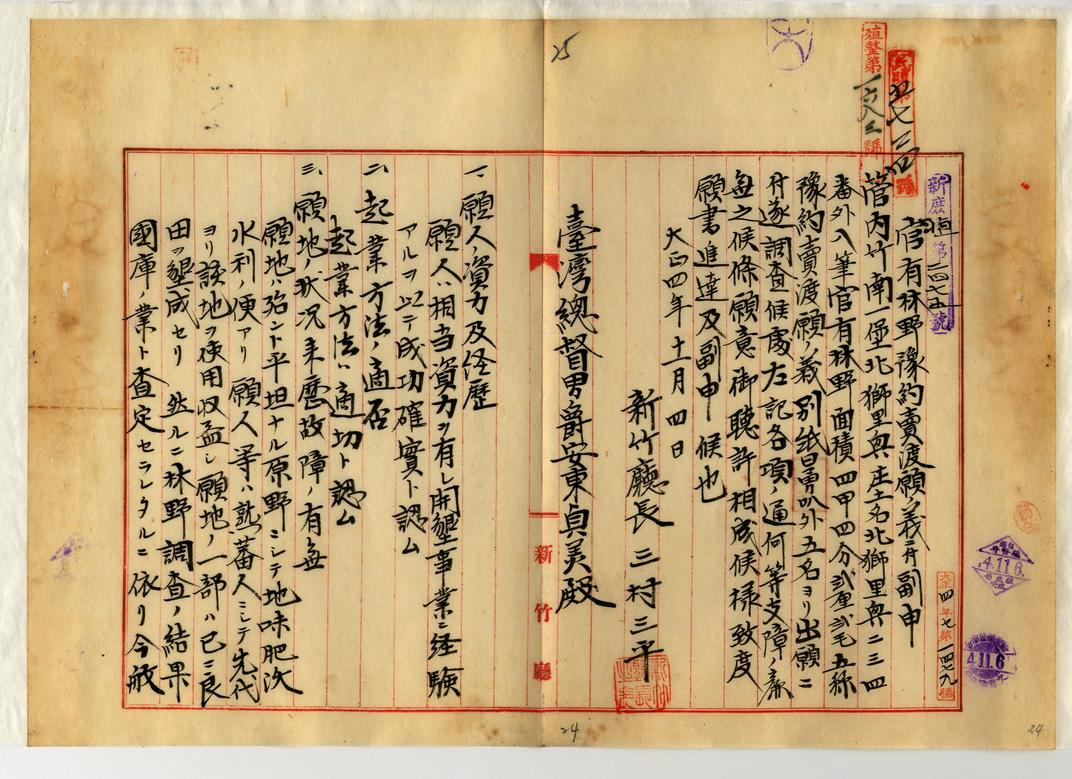 25
殖整第一六八三號
五七三四
新庶第二四七五號
官有林野豫約賣渡願ノ義ニ付副申
管內竹南一堡北獅里興庄土名北獅里興二三四
番外八筆官有林野面積四甲四分貳厘貳毛五絲
豫約賣渡願ノ義別紙日鼻叭外五名ヨリ出願ニ
付遂調查候處左記各項ノ通何等支障ノ廉
無之候條願意御聽許相成候樣致度
願書進達及副申候也
大正四年十一月四日
新竹廳長 三村三平
臺灣總督男爵安東貞美殿
大正四年七第一四七九號
4.11.6
4.11.6
新竹廳
一、願人資力及経歷
願人ハ相当資力ヲ有シ開墾事業ニ経驗
アルヲ以テ成功確實ト認ム
二、起業方法ノ適否
起業方法ハ適切ト認ム
三、願地ノ狀況来歷故障ノ有無
願地ハ殆ント平坦ナル原野ニシテ地味肥沃
水利ノ便アリ 願人等ハ熟蕃人ニシテ先代
ヨリ該地ヲ使用収益シ願地ノ一部ハ已ニ良
田ヲ墾成セリ 然ルニ林野調査ノ結果
國庫ノ業ト査定セラレタルニ依リ今般
24
24